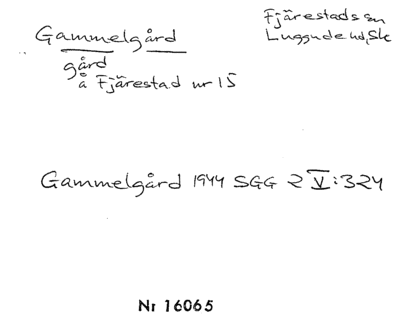 Gammelgård
Fjärestads sn
Luggude hd, Sk
gård
å Fjärestad nr 15
Gammelgård 1944 SGG 2 V:324
Nr 16065